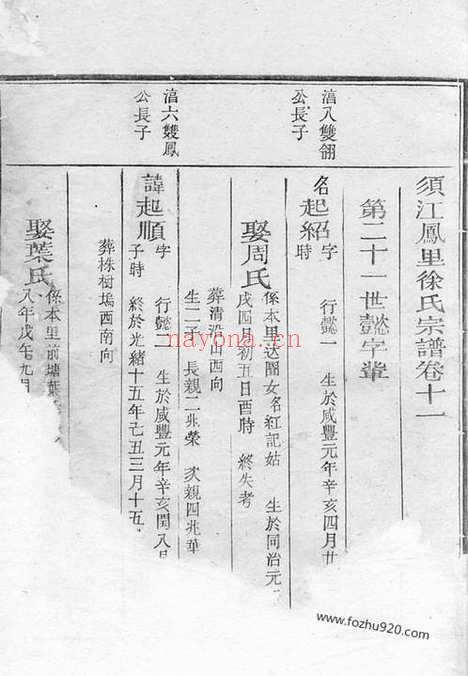 須江鳳里徐氏宗譜卷十一
第二十一世懿字輩
滀八雙翎
公長子
名起紹字 行懿一 生於咸豐元年辛亥四月廿
時
娶周氏係本里达團女名紅記姑 生於同治元
戌四月初五日酉時 終失考
葬溝沿山西向
生二子 長親二兆榮 次親四兆華
滀六雙鳳
公長子
諱起順字 行懿二 生於咸豐元年辛亥閏八月
子時 終於光緒十五年己丑三月十五
葬株樹塢西南向
娶葉氏係本里前塘葉
八年戊午九月
nayona.cn
www.fozhu920.com